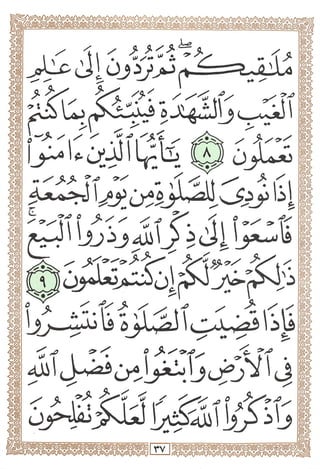 مُلَٰقِيكُمْۖ ثُمَّ تُرَدُّونَ إِلَىٰ عَٰلِمِ
ٱلْغَيْبِ وَٱلشَّهَٰدَةِ فَيُنَبِّئُكُم بِمَا كُنتُمْ
تَعْمَلُونَ ٨ يَٰٓأَيُّهَا ٱلَّذِينَ ءَامَنُوٓا۟
إِذَا نُودِىَ لِلصَّلَوٰةِ مِن يَوْمِ ٱلْجُمُعَةِ
فَٱسْعَوْا۟ إِلَىٰ ذِكْرِ ٱللَّهِ وَذَرُوا۟ ٱلْبَيْعَۚ
ذَٰلِكُمْ خَيْرٌ لَّكُمْ إِن كُنتُمْ تَعْلَمُونَ ٩
فَإِذَا قُضِيَتِ ٱلصَّلَوٰةُ فَٱنتَشِرُوا۟
فِى ٱلْأَرْضِ وَٱبْتَغُوا۟ مِن فَضْلِ ٱللَّهِ
وَٱذْكُرُوا۟ ٱللَّهَ كَثِيرًا لَّعَلَّكُمْ تُفْلِحُونَ
٣٧